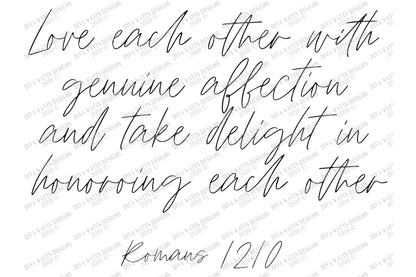 Love each other with
genuine affection
and take delight in
honoroing each other
Romans 12:10